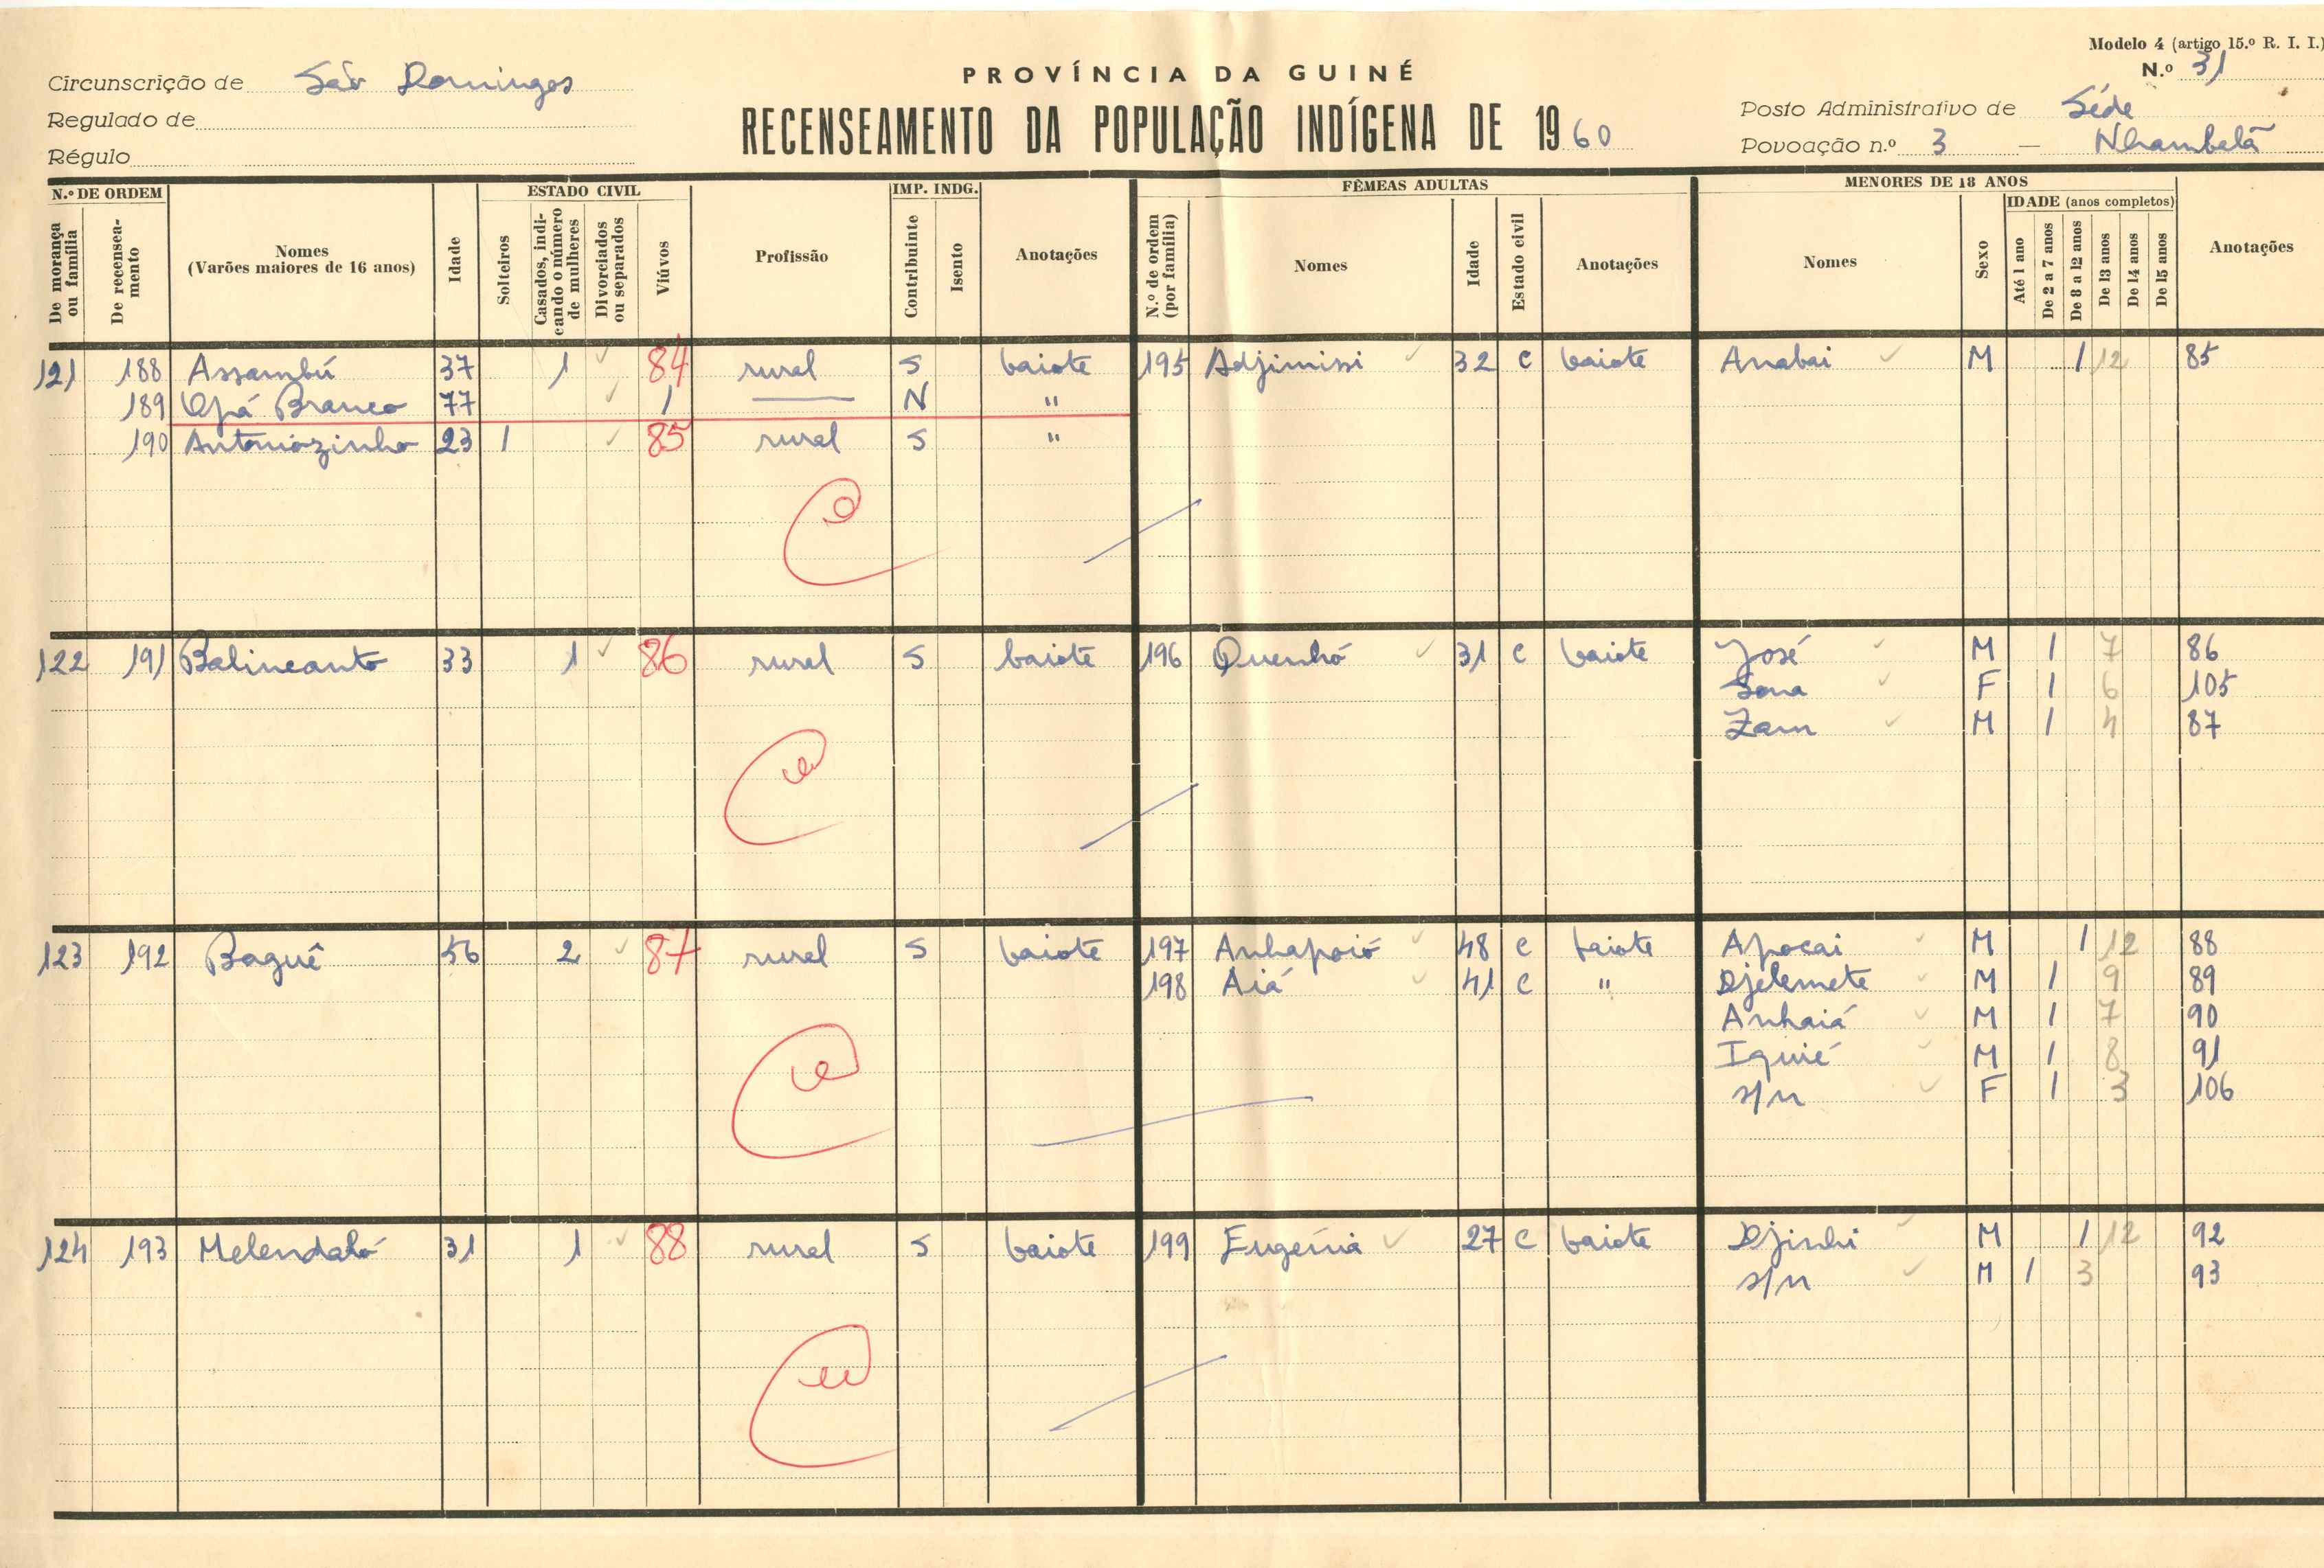 Modelo 4 (artigo 15.º R. I. I.)
N.º 31
PROVÍNCIA DA GUINÉ
RECENSEAMENTO DA POPULAÇÃO INDÍGENA DE 1960
Circunscrição de São Domingos
Regulado de
Régulo
Posto Administrativo de Séde
Povoação n.º 3 — Nhambalã
N.º DE ORDEM
De morança ou família
De recenseamento
Nomes
(Varões maiores de 16 anos)
Idade
ESTADO CIVIL
Solteiros
Casados, indicando o número de mulheres
Divorciados ou separados
Viúvos
Profissão
IMP. INDG.
Contribuinte
Isento
Anotações
FÊMEAS ADULTAS
N.º de ordem (por família)
Nomes
Idade
Estado civil
Anotações
MENORES DE 18 ANOS
Nomes
Sexo
IDADE (anos completos)
Até 1 ano
De 2 a 7 anos
De 8 a 12 anos
De 13 anos
De 14 anos
De 15 anos
Anotações
121 188 Assambú 37 1 84 rural S baiote 195 Adjimissi 32 C baiote Anabai M 1 12 85
189 Opá Branco 77 1 — N "
190 Antoniozinho 23 1 85 rural S "
122 191 Balineanto 33 1 86 rural S baiote 196 Quenhó 31 C baiote José M 1 7 86
Sona F 1 6 105
Zam M 1 4 87
123 192 Baguê 56 2 87 rural S baiote 197 Anhapoió 48 C baiote Apocai M 1 12 88
198 Aiá 41 C " Djelemete M 1 9 89
Anhaiá M 1 7 90
Iquié M 1 8 91
s/n F 1 3 106
124 193 Melendaló 31 1 88 rural S baiote 199 Eugénia 27 C baiote Djinhi M 1 12 92
s/n M 1 3 93